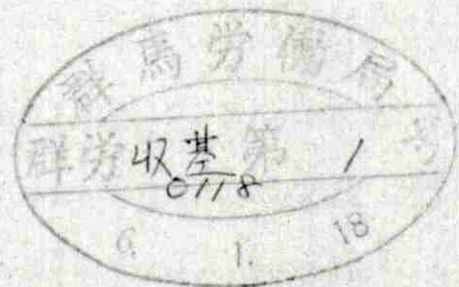 群馬労働局
群労収基第1号
0118
6. 1. 18